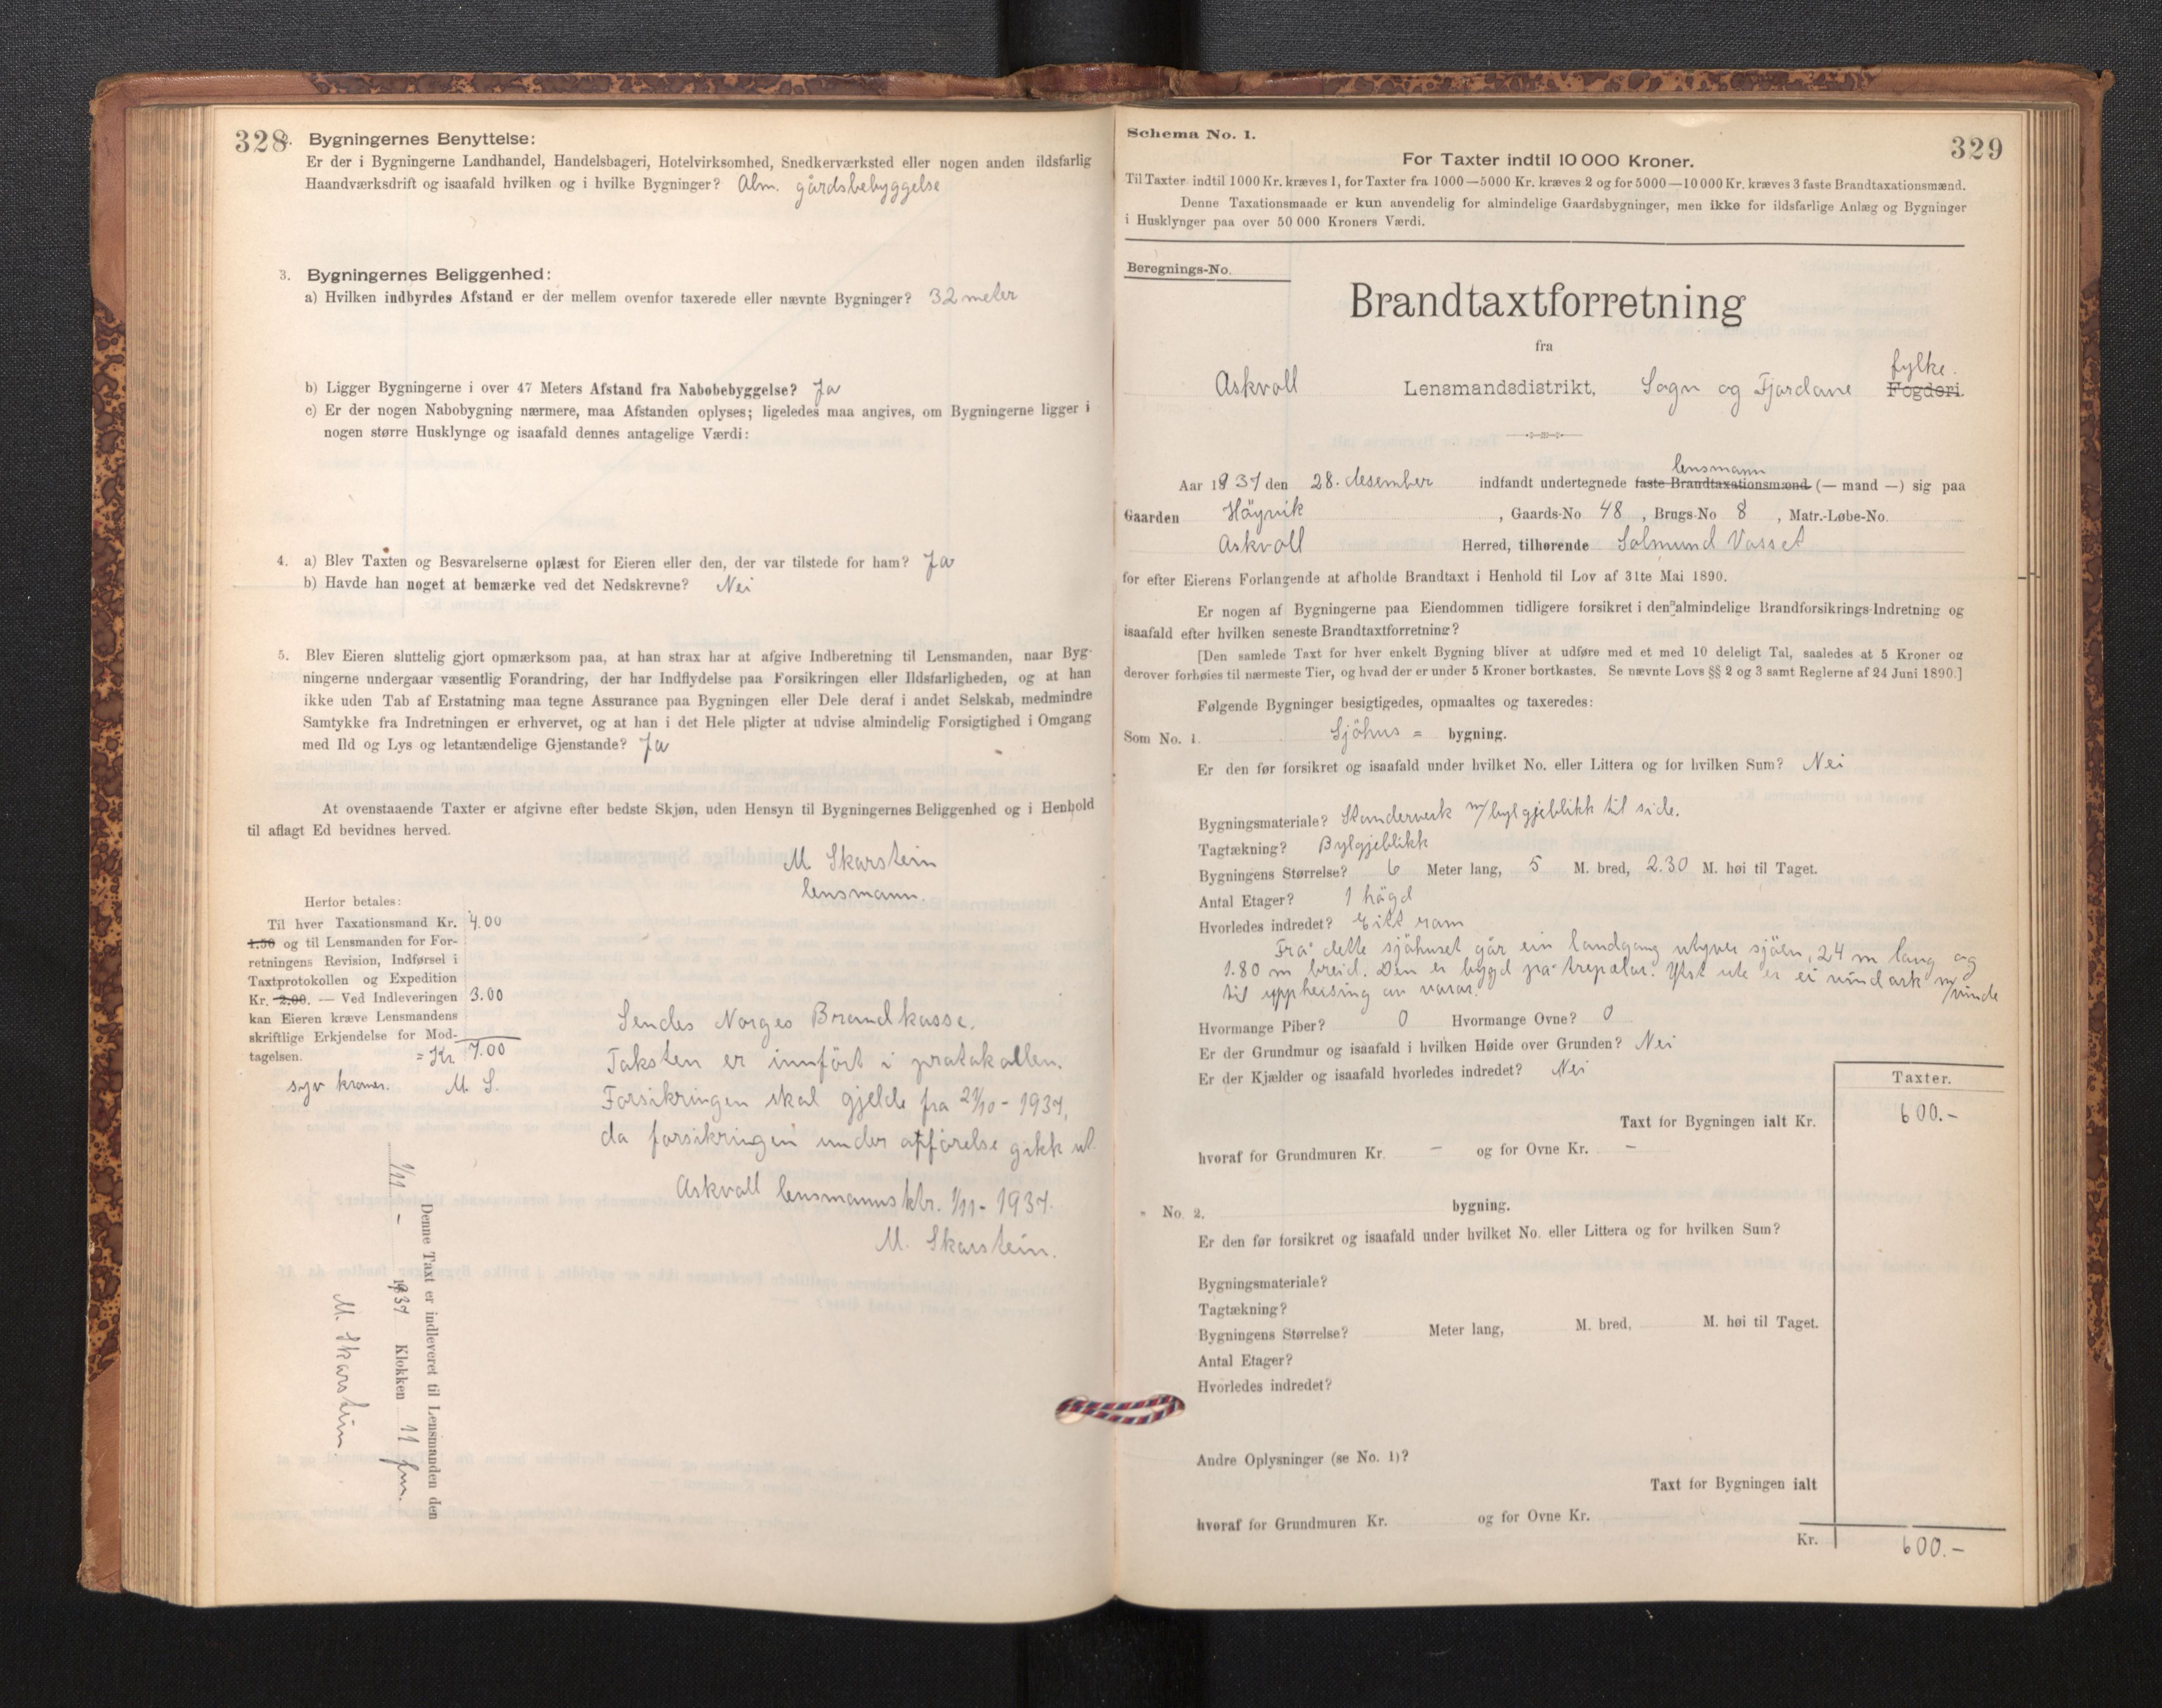 328
2. Bygningernes Benyttelse:
Er der i Bygningerne Landhandel, Handelsbageri, Hotelvirksomhed, Snedkerværksted eller nogen anden ildsfarlig
Haandværksdrift og isaafald hvilken og i hvilke Bygninger? Alm. gårdsbebyggelse
3. Bygningernes Beliggenhed:
a) Hvilken indbyrdes Afstand er der mellem ovenfor taxerede eller nævnte Bygninger? 32 meter
b) Ligger Bygningerne i over 47 Meters Afstand fra Nabobebyggelse? Ja
c) Er der nogen Nabobygning nærmere, maa Afstanden oplyses; ligeledes maa angives, om Bygningerne ligger i
nogen større Husklynge og isaafald dennes antagelige Værdi:
4. a) Blev Taxten og Besvarelserne oplæst for Eieren eller den, der var tilstede for ham? Ja
b) Havde han noget at bemærke ved det Nedskrevne? Nei
5. Blev Eieren sluttelig gjort opmærksom paa, at han strax har at afgive Indberetning til Lensmanden, naar Byg-
ningerne undergaar væsentlig Forandring, der har Indflydelse paa Forsikringen eller Ildsfarligheden, og at han
ikke uden Tab af Erstatning maa tegne Assurance paa Bygningen eller Dele deraf i andet Selskab, medmindre
Samtykke fra Indretningen er erhvervet, og at han i det Hele pligter at udvise almindelig Forsigtighed i Omgang
med Ild og Lys og letantændelige Gjenstande? Ja
At ovenstaaende Taxter er afgivne efter bedste Skjøn, uden Hensyn til Bygningernes Beliggenhed og i Henhold
til aflagt Ed bevidnes herved.
M Skarstein
lensmann.
Herfor betales:
Til hver Taxationsmand Kr. 4.00
1.50 og til Lensmanden for For-
retningens Revision, Indførsel i
Taxtprotokollen og Expedition
Kr. 2.00. — Ved Indleveringen 3.00
kan Eieren kræve Lensmandens
skriftlige Erkjendelse for Mod-
tagelsen. = Kr. 7.00
syv kroner. M. S.
Sendes Norges Brandkasse.
Taksten er innført i protokollen.
Forsikringen skal gjelde fra 27/10 - 1937,
da forsikringen under oppførelse gikk ut.
Askvoll lensmannsktr. 1/11 - 1937.
M. Skarstein.
Denne Taxt er indleveret til Lensmanden den
1/11 - 1937 Klokken 11 fm.
M. Skarstein
329
Schema No. 1.
For Taxter indtil 10 000 Kroner.
Til Taxter indtil 1000 Kr. kræves 1, for Taxter fra 1000—5000 Kr. kræves 2 og for 5000—10 000 Kr. kræves 3 faste Brandtaxationsmænd.
Denne Taxationsmaade er kun anvendelig for almindelige Gaardsbygninger, men ikke for ildsfarlige Anlæg og Bygninger
i Husklynger paa over 50 000 Kroners Værdi.
Beregnings-No.
Brandtaxtforretning
fra
fylke.
Askvoll Lensmandsdistrikt, Sogn og Fjordane Fogderi.
lensmann
Aar 1937 den 28. desember indfandt undertegnede faste Brandtaxationsmænd (— mand —) sig paa
Gaarden Høyvik, Gaards-No 48, Brugs-No 8, Matr.-Løbe-No.
Askvoll Herred, tilhørende Salmund Vasset
for efter Eierens Forlangende at afholde Brandtaxt i Henhold til Lov af 31te Mai 1890.
Er nogen af Bygningerne paa Eiendommen tidligere forsikret i den almindelige Brandforsikrings-Indretning og
isaafald efter hvilken seneste Brandtaxtforretning?
[Den samlede Taxt for hver enkelt Bygning bliver at udføre med et med 10 deleligt Tal, saaledes at 5 Kroner og
derover forhøies til nærmeste Tier, og hvad der er under 5 Kroner bortkastes. Se nævnte Lovs §§ 2 og 3 samt Reglerne af 24 Juni 1890.]
Følgende Bygninger besigtigedes, opmaaltes og taxeredes:
Som No. 1. Sjöhus = bygning.
Er den før forsikret og isaafald under hvilket No. eller Littera og for hvilken Sum? Nei
Bygningsmateriale? Standerverk m/bylgjeblikk til side.
Tagtækning? Bylgjeblikk
Bygningens Størrelse? 6 Meter lang, 5 M. bred, 2.30 M. høi til Taget.
Antal Etager? 1 högd
Hvorledes indredet? Eitt rom
Frå dette sjöhuset går ein landgang utyver sjöen, 24 m lang og
1.80 m breid. Den er bygd på trepælar. Ytst ute er ei vindark m/vinde
til uppheising av varar.
Hvormange Piber? 0 Hvormange Ovne? 0
Er der Grundmur og isaafald i hvilken Høide over Grunden? Nei
Er der Kjælder og isaafald hvorledes indredet? Nei
Taxter.
Taxt for Bygningen ialt Kr. 600.-
hvoraf for Grundmuren Kr. - og for Ovne Kr. -
" No. 2. bygning.
Er den før forsikret og isaafald under hvilket No. eller Littera og for hvilken Sum?
Bygningsmateriale?
Tagtækning?
Bygningens Størrelse? Meter lang, M. bred, M. høi til Taget.
Antal Etager?
Hvorledes indredet?
Andre Oplysninger (se No. 1)?
Taxt for Bygningen ialt
hvoraf for Grundmuren Kr. og for Ovne Kr.
Kr. 600.-